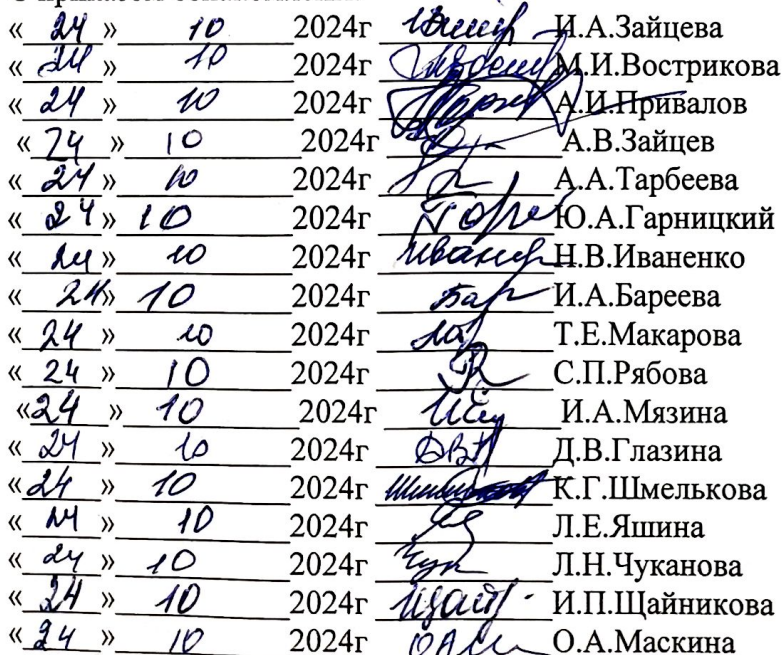 « 24 » 10 2024г И.А.Зайцева
« 24 » 10 2024г М.И.Вострикова
« 24 » 10 2024г А.И.Привалов
« 24 » 10 2024г А.В.Зайцев
« 24 » 10 2024г А.А.Тарбеева
« 24 » 10 2024г Ю.А.Гарницкий
« 24 » 10 2024г Н.В.Иваненко
« 24» 10 2024г Бар И.А.Бареева
« 24 » 10 2024г Т.Е.Макарова
« 24 » 10 2024г С.П.Рябова
«24 » 10 2024г И.А.Мязина
« 24 » 10 2024г Д.В.Глазина
«24 » 10 2024г К.Г.Шмелькова
« 24 » 10 2024г Л.Е.Яшина
« 24 » 10 2024г Чук Л.Н.Чуканова
« 24 » 10 2024г И.П.Щайникова
« 24 » 10 2024г О.А.Маскина